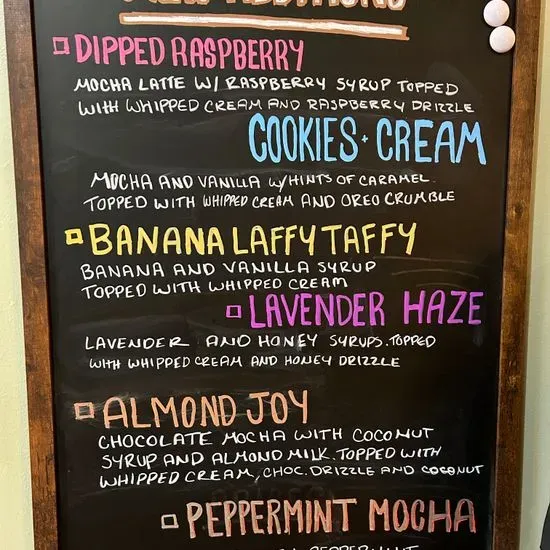 ADDITIONS
DIPPED RASPBERRY
MOCHA LATTE W/ RASPBERRY SYRUP TOPPED
WITH WHIPPED CREAM AND RASPBERRY DRIZZLE
COOKIES + CREAM
MOCHA AND VANILLA W/HINTS OF CARAMEL
TOPPED WITH WHIPPED CREAM AND OREO CRUMBLE
BANANA LAFFY TAFFY
BANANA AND VANILLA SYRUP
TOPPED WITH WHIPPED CREAM
LAVENDER HAZE
LAVENDER AND HONEY SYRUPS. TOPPED
WITH WHIPPED CREAM AND HONEY DRIZZLE
ALMOND JOY
CHOCOLATE MOCHA WITH COCONUT
SYRUP AND ALMOND MILK. TOPPED WITH
WHIPPED CREAM, CHOC. DRIZZLE AND COCONUT
PEPPERMINT MOCHA
PEPPERMINT